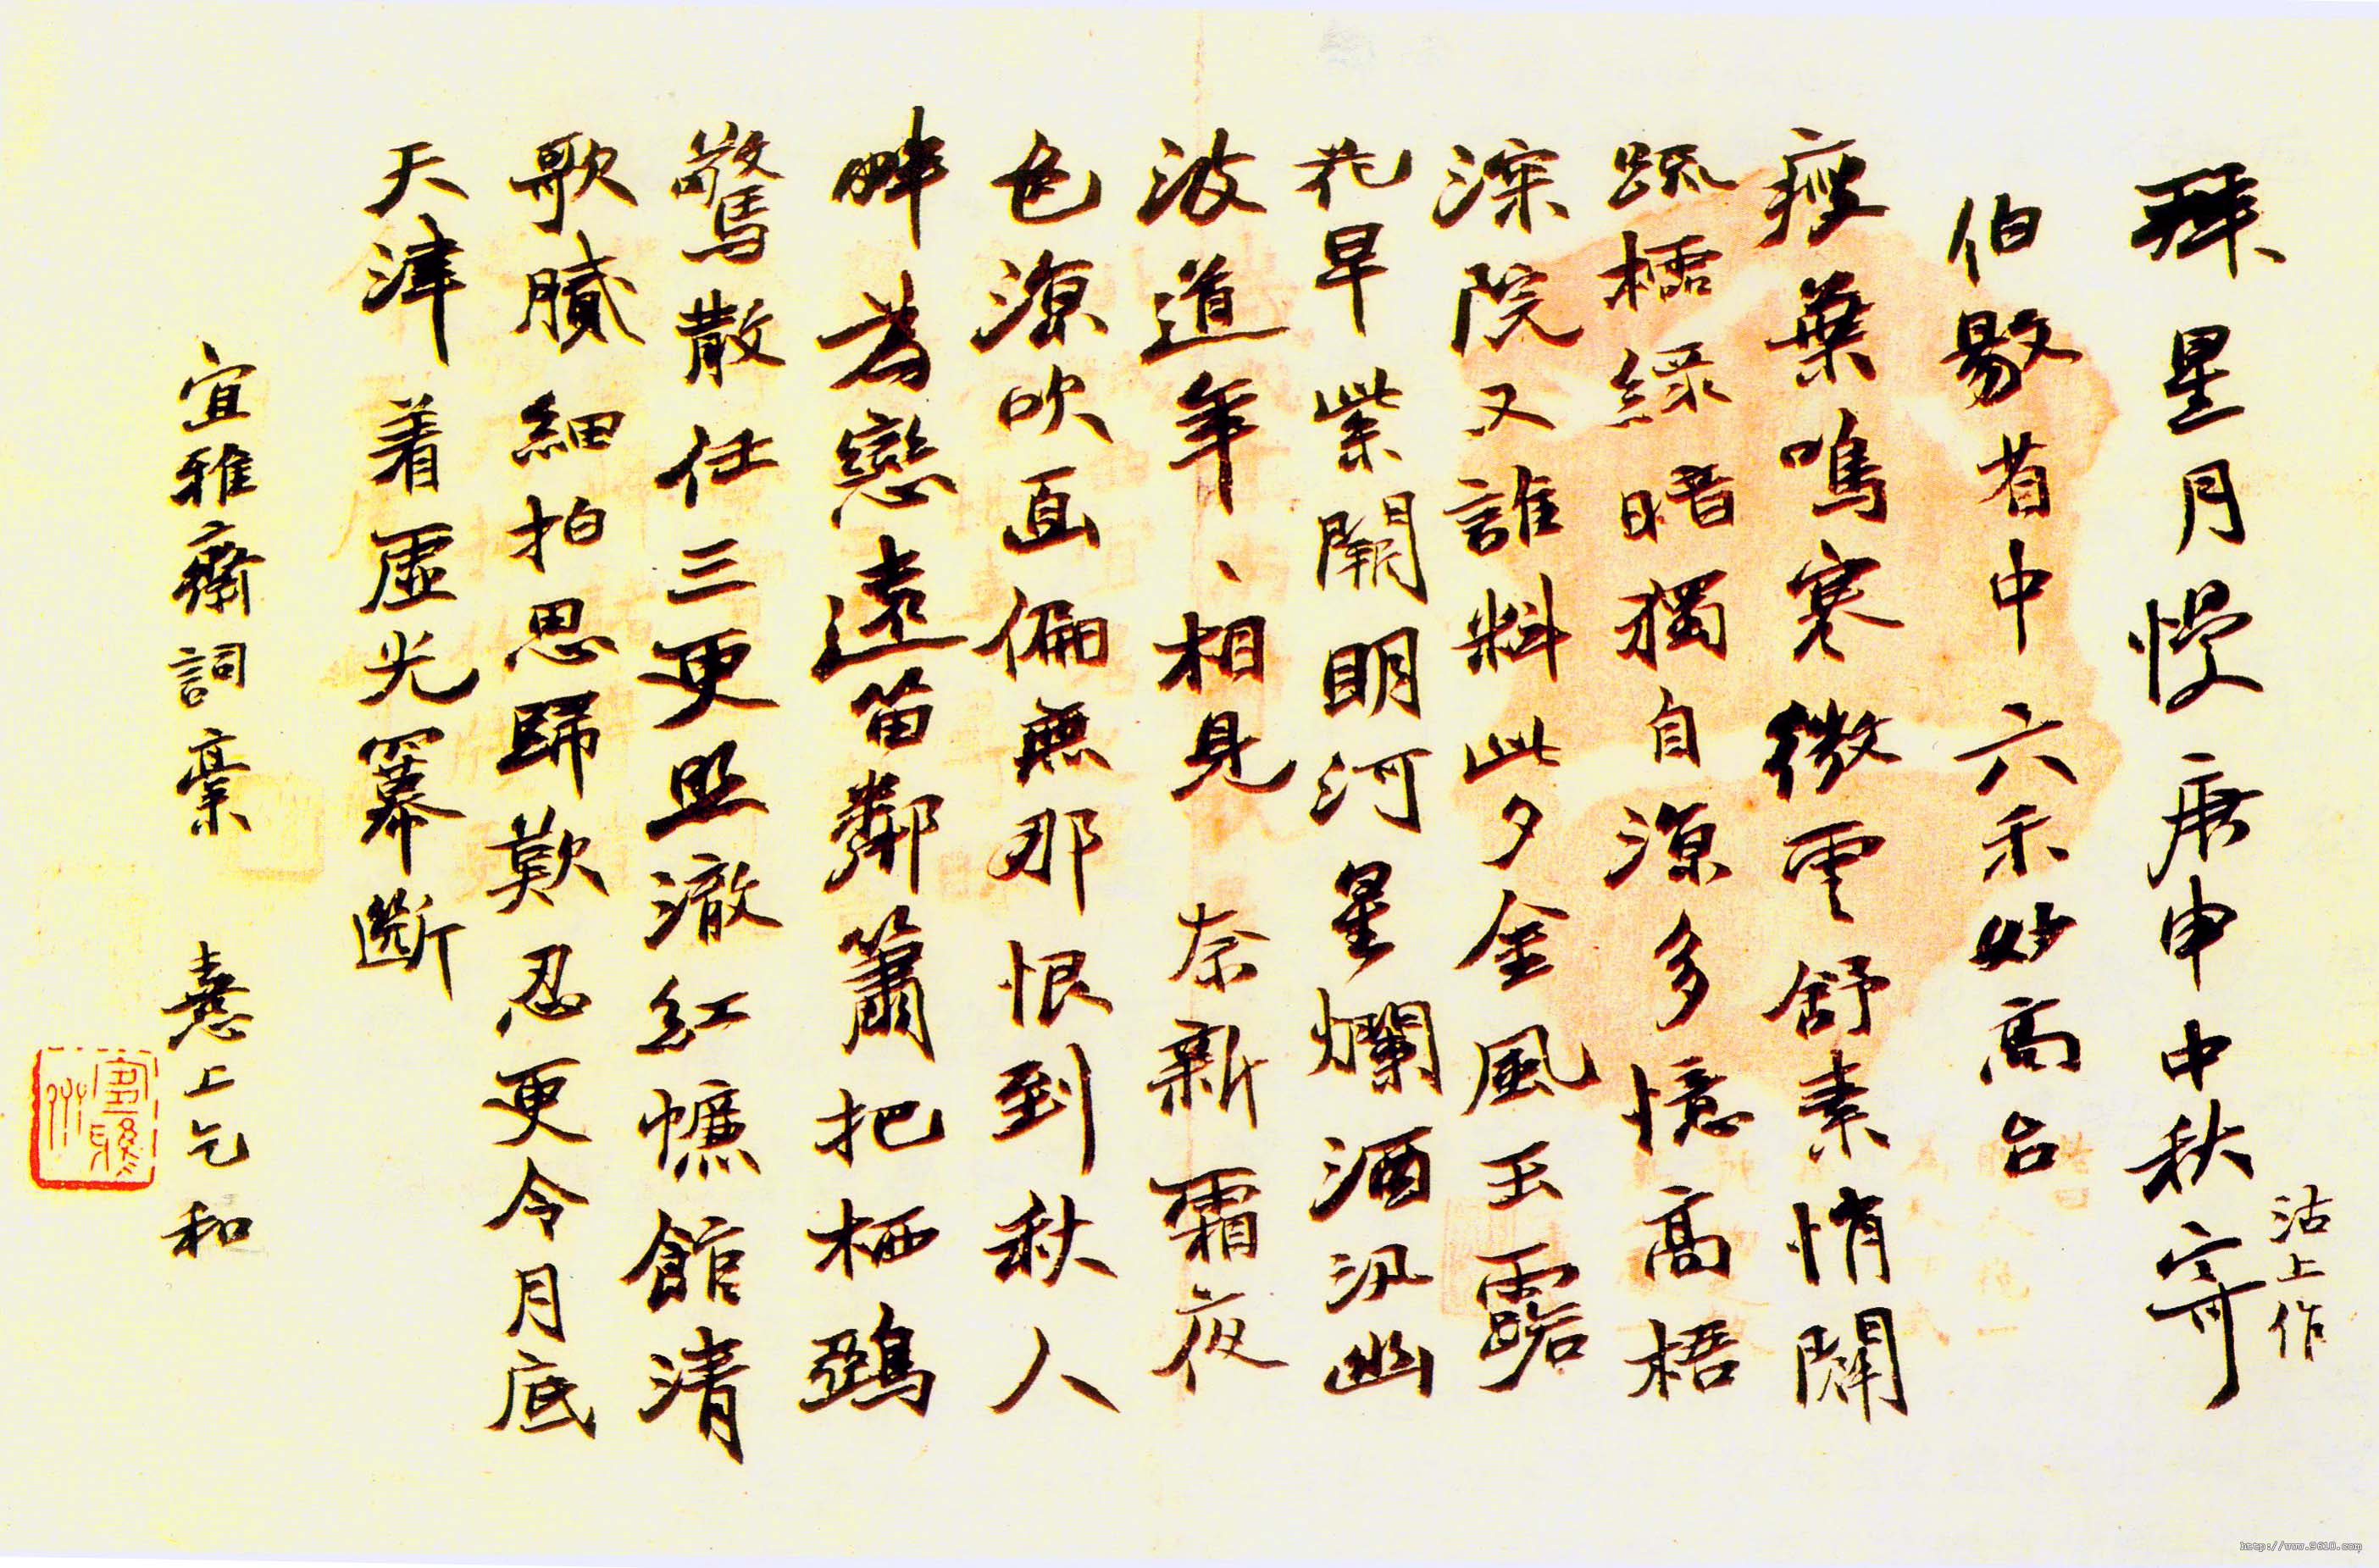 拜星月慢 庚申中秋寄
沽上作
伯駒省中六禾妙高台
瘦葉鳴寒微雲舒素悄闢
疏櫺綠暗獨自源多憶高梧
深院又誰料此夕金風玉露
花早紫闌明河星爛酒汎幽
波道年、相見 奈新霜夜
色源吹面偏無那恨到秋人
畔為戀遠笛鄰簫把栖鵶
驚散任三更照澈紅幰館清
歌賸細拍思歸歎忍更令月底
天津着虛光羃斷
宜雅齋詞稾 憙上乞和
http://www.9610.com